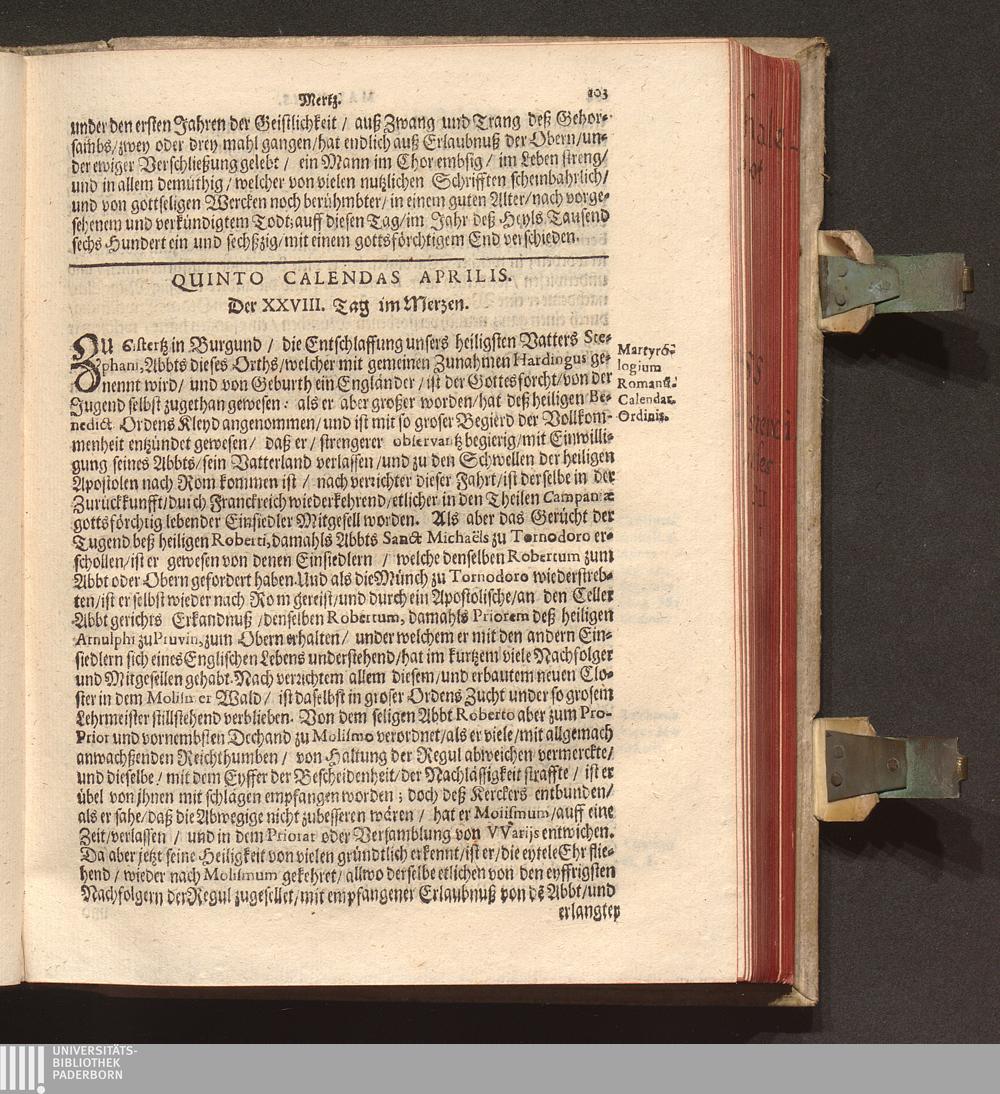 Mertz. 103
under den ersten Jahren der Geistlichkeit / auß Zwang und Trang deß Gehor-
sambs/zwey oder drey mahl gangen/hat endlich auß Erlaubnuß der Obern/un-
der ewiger Verschließung gelebt / ein Mann im Chor embsig / im Leben streng/
und in allem demüthig / welcher von vielen nutzlichen Schrifften scheinbahrlich/
und von gottseligen Wercken noch berühmbter / in einem guten Alter/nach vorge-
sehenem und verkündigtem Todt; auff diesen Tag/im Jahr deß Heyls Tausend
sechs Hundert ein und sechßzig/mit einem gottsförchtigem End verschieden.
QUINTO CALENDAS APRILIS.
Der XXVIII. Tag im Merzen.
Zu Cistertz in Burgund / die Entschlaffung unsers heiligsten Vatters Ste-
phani, Abbts dieses Orths/welcher mit gemeinen Zunahmen Hardingus ge-
nennt wird/ und von Geburth ein Engländer / ist der Gottesforcht/von der
Jugend selbst zugethan gewesen: als er aber großer worden/hat deß heiligen Be-
nedict Ordens Kleyd angenommen/und ist mit so groser Begierd der Vollkom-
menheit entzündet gewesen/ daß er / strengerer observantz begierig/mit Einwilli-
gung seines Abbts/sein Vatterland verlassen /und zu den Schwellen der heiligen
Apostolen nach Rom kommen ist / nach verrichter dieser Fahrt/ist derselbe in der
Zurückkunfft/durch Franckreich wiederkehrend/etlicher in den Theilen Campaniæ
gottsförchtig lebender Einsiedler Mitgesell worden. Als aber das Gerücht der
Tugend beß heiligen Roberti, damahls Abbts Sanct Michaëls zu Tornodoro er-
schollen/ist er gewesen von denen Einsiedlern / welche denselben Robertum zum
Abbt oder Obern gefordert haben. Und als die Münch zu Tornodoro wiederstreb-
ten/ist er selbst wieder nach Rom gereist/und durch ein Apostolische/an den Celler
Abbt gerichts Erkandnuß /denselben Robertum, damahls Priorem deß heiligen
Arnulphi zu Pruvin, zum Obern erhalten/ under welchem er mit den andern Ein-
siedlern sich eines Englischen Lebens understehend/hat im kurtzem viele Nachfolger
und Mitgesellen gehabt. Nach verrichtem allem diesem/und erbautem neuen Clo-
ster in dem Molismer Wald/ ist daselbst in groser Ordens Zucht under so grosem
Lehrmeister stillstehend verblieben. Von dem seligen Abbt Roberto aber zum Pro-
Prior und vornembsten Dechand zu Molismo verordnet/als er viele/mit allgemach
anwachßenden Reichthumben / von Haltung der Regul abweichen vermerckte/
und dieselbe / mit dem Eyffer der Bescheidenheit/der Nachlässigkeit straffte / ist er
übel von ihnen mit schlägen empfangen worden; doch deß Kerckers entbunden/
als er sahe/daß die Abwegige nicht zubesseren wären / hat er Molismum/auff eine
Zeit/verlassen / und in dem Priorat oder Versamblung von VVarijs entwichen.
Da aber jetzt seine Heiligkeit von vielen gründtlich erkennt/ist er/die eytele Ehr flie-
hend / wieder nach Molismum gekehret/ allwo derselbe etlichen von den eyffrigsten
Nachfolgern der Regul zugesellet/mit empfangener Erlaubnuß von dē Abbt/und
erlangter
Martyro-
logium
Romanū.
Calendar.
Ordinis.
UNIVERSITÄTS-
BIBLIOTHEK
PADERBORN